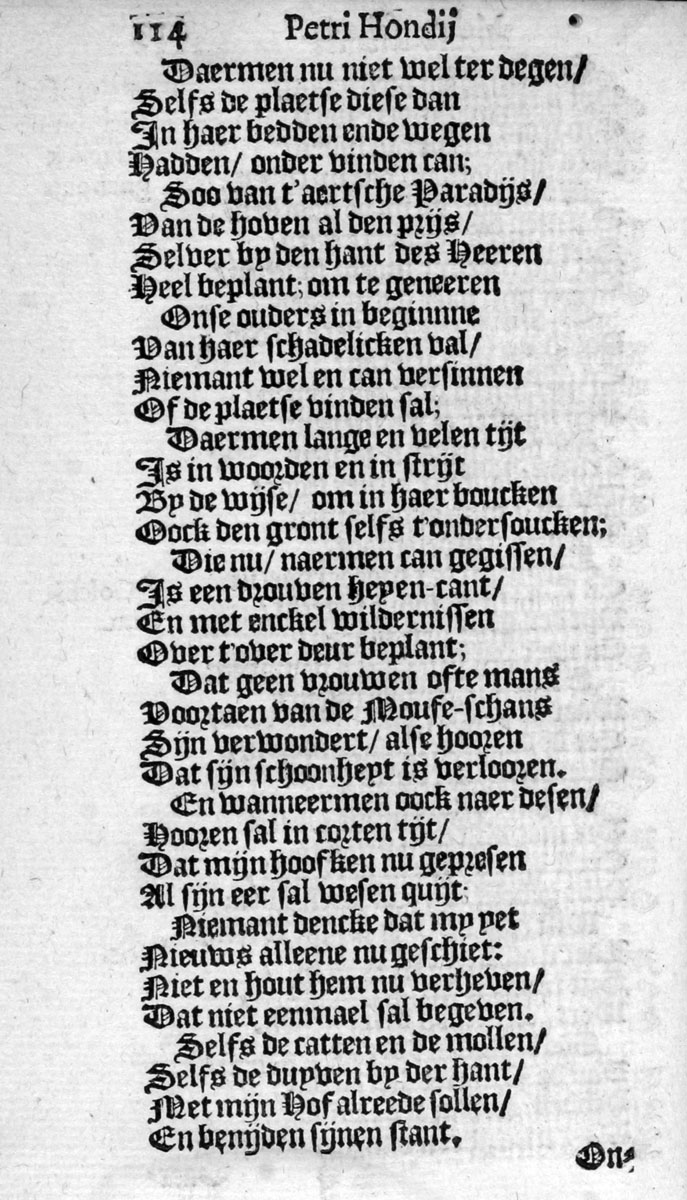 114 Petri Hondij
Daermen nu niet wel ter degen/
Selfs de plaetse diese dan
In haer bedden ende wegen
Hadden/ onder vinden can;
Soo van t'aertsche Paradijs/
Van de hoven al den prijs/
Selver by den hant des Heeren
Heel beplant; om te geneeren
Onse ouders in beginnne
Van haer schadelicken val/
Niemant wel en can versinnen
Of de plaetse vinden sal;
Daermen lange en velen tijt
Is in woorden en in strijt
By de wijse/ om in haer boucken
Oock den gront selfs t'ondersoucken;
Die nu/ naermen can gegissen/
Is een drouven heyen-cant/
En met enckel wildernissen
Over t'over deur beplant;
Dat geen vrouwen ofte mans
Voortaen van de Moufe-schans
Sijn verwondert/ alse hooren
Dat sijn schoonheyt is verlooren.
En wanneermen oock naer desen/
Hooren sal in corten tijt/
Dat mijn hoofken nu gepresen
Al sijn eer sal wesen quijt;
Niemant dencke dat my yet
Nieuws alleene nu geschiet:
Niet en hout hem nu verheven/
Dat niet eenmael sal begeven.
Selfs de catten en de mollen/
Selfs de duyven by der hant/
Met mijn Hof alreede sollen/
En benijden sijnen stant.
On-